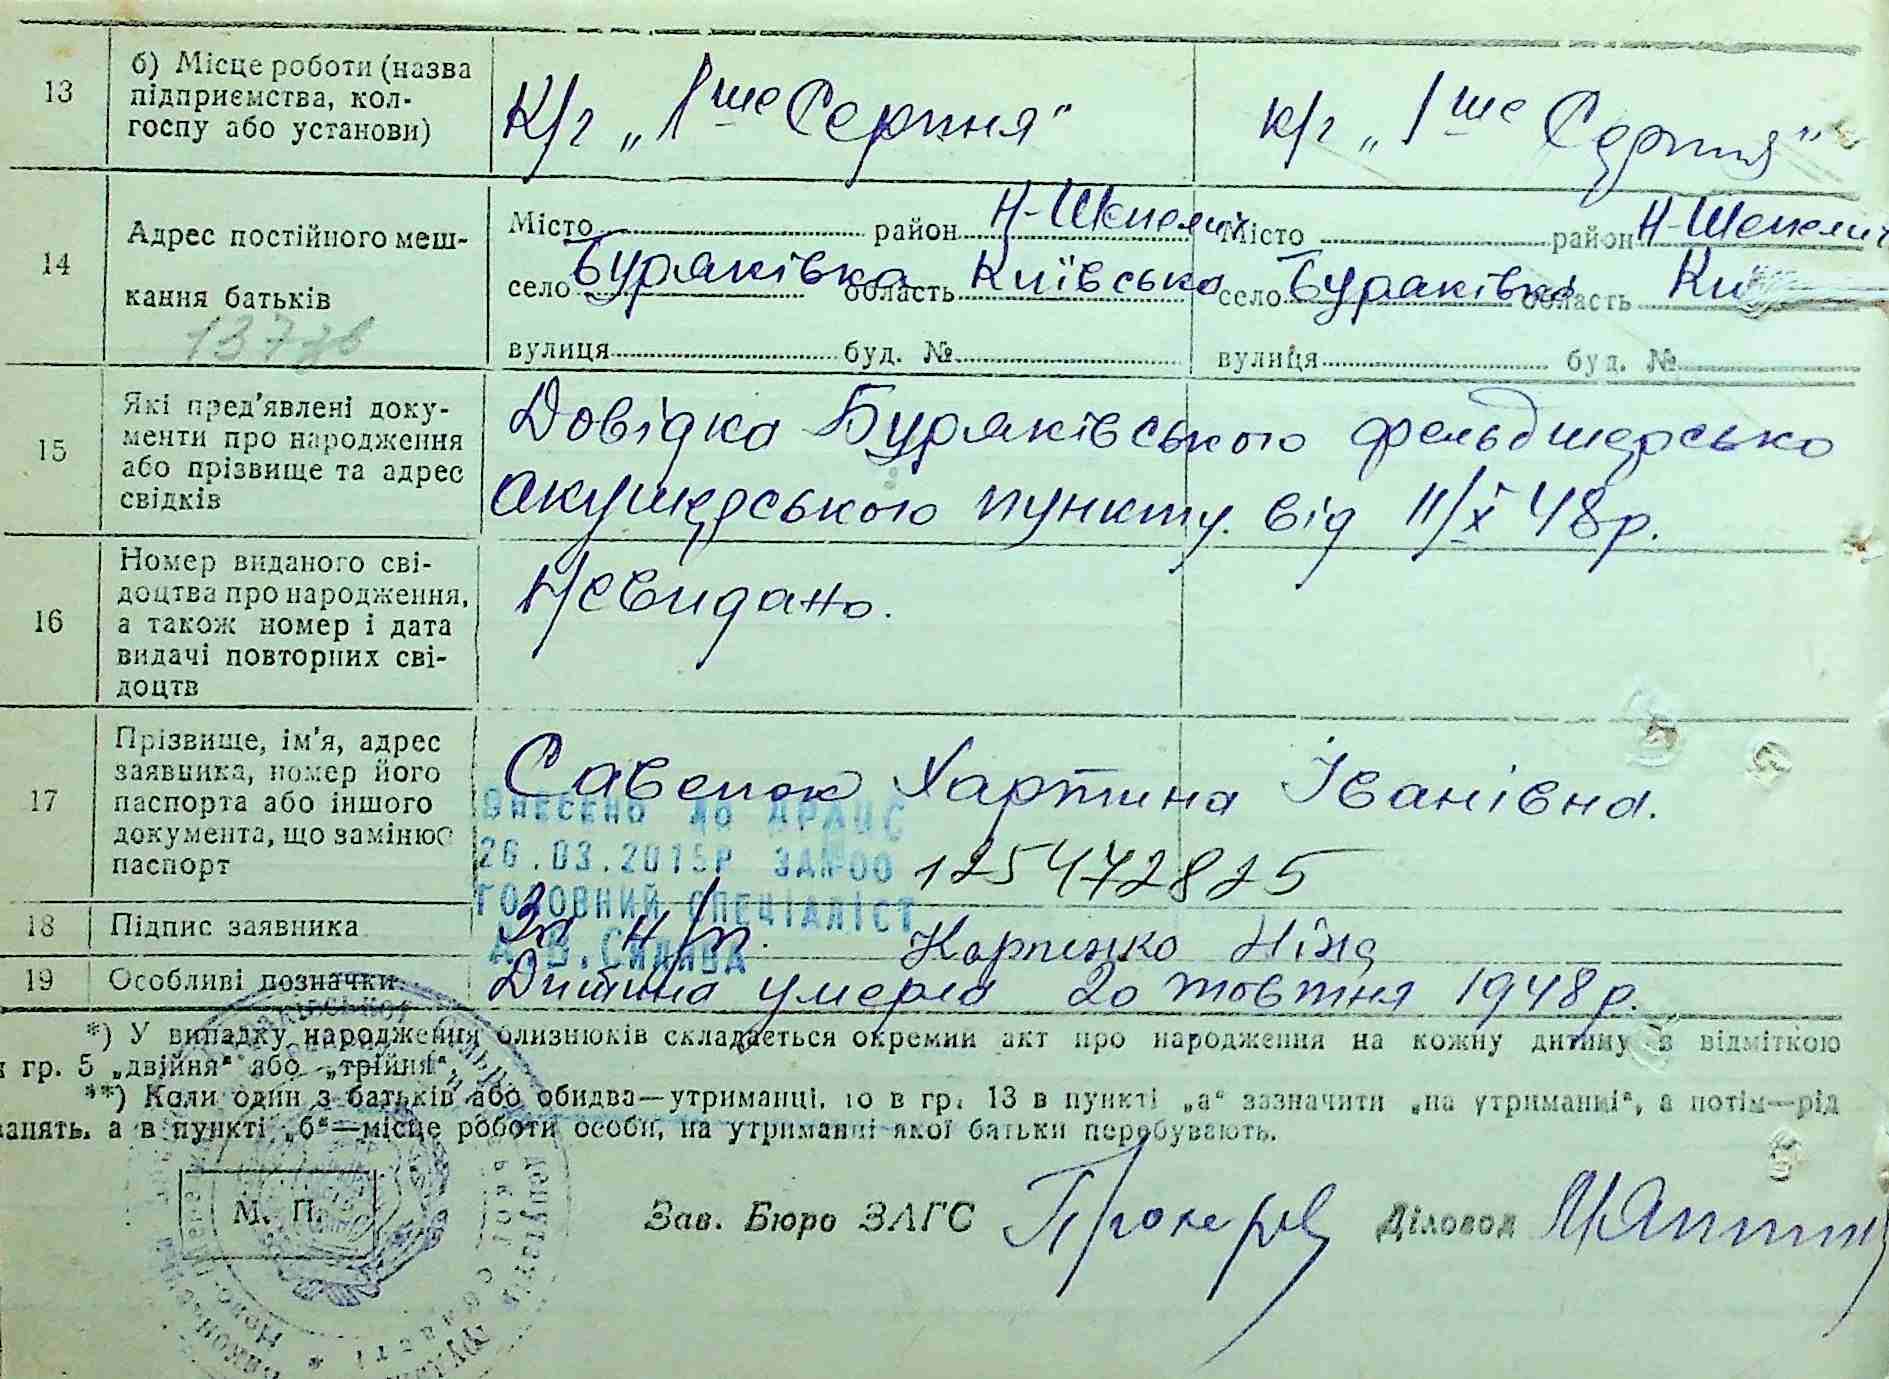 13
б) Місце роботи (назва
підприємства, кол-
госпу або установи)
К/г „1ше Серпня"
к/г „1ше Серпня"
14
Адрес постійного меш-
кання батьків
137
Місто район Н-Шепелич
село Буряківка область Київська
вулиця буд. №
Місто район Н-Шепелич
село Буряківка область Ки
вулиця буд. №
15
Які пред'явлені доку-
менти про народження
або прізвище та адрес
свідків
Довідка Буряківського фельдшерсько
акушерського пункту від 11/X 48р.
16
Номер виданого сві-
доцтва про народження,
а також номер і дата
видачі повторних сві-
доцтв
Невидано.
17
Прізвище, ім'я, адрес
заявника, номер його
паспорта або іншого
документа, що замінює
паспорт
Савенок Хартина Іванівна.
ВНЕСЕНО ДО ДРАЦС
26.03.2015Р ЗА№00 125472825
ГОЛОВНИЙ СПЕЦІАЛІСТ
18
Підпис заявника
За н/п. Карпенко Ніна
А.В.
19
Особливі позначки
Дитина умерла 20 жовтня 1948р.
*) У випадку народження близнюків складається окремий акт про народження на кожну дитину з відміткою
гр. 5 „двійня" або „трійня".
**) Коли один з батьків або обидва—утриманці, то в гр. 13 в пункті „а" зазначити „на утриманні", а потім—рід
занять, а в пункті „б"—місце роботи особи, на утриманні якої батьки перебувають.
М. П.
Зав. Бюро ЗАГС
Діловод